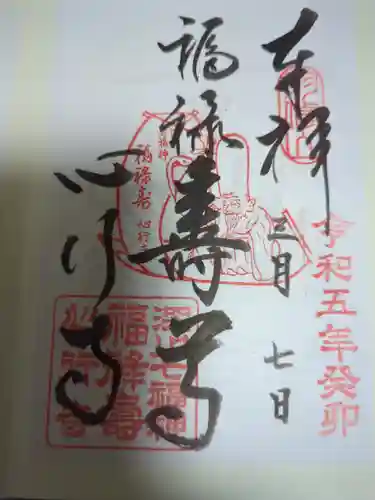 奉拝
三月七日
令和五年癸卯
福禄壽
心行寺
福神
福禄寿
心行寺
深川七福神
福禄壽
心行寺